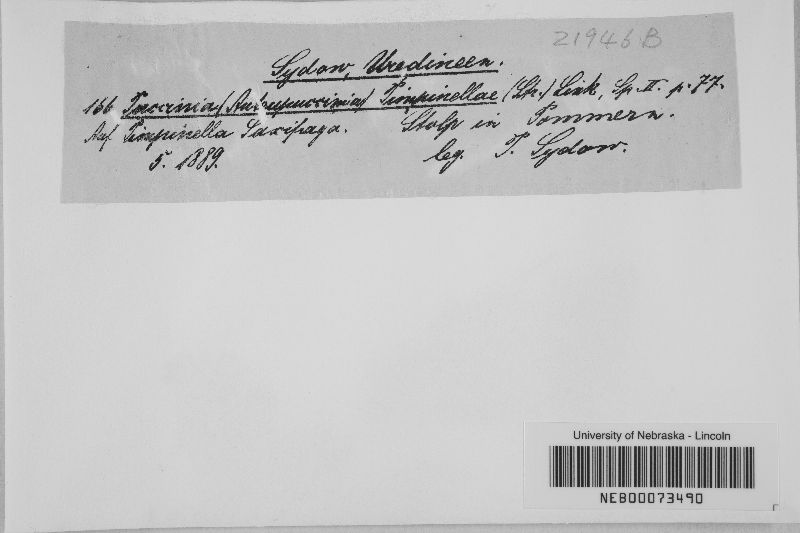 21946B
Sydow, Uredineen.
166 Puccinia (Autopuccinia) Pimpinellae (Str.) Link, Sp. II. p. 77.
Auf Pimpinella Saxifraga. Stolp in Pommern.
5. 1889. leg. P. Sydow.
University of Nebraska - Lincoln
NEB00073490